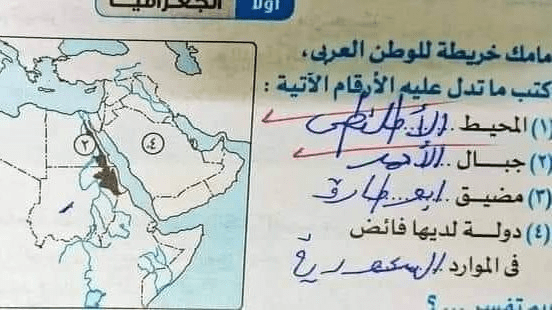 أولا الجغرافيا
مامك خريطة للوطن العربى،
كتب ما تدل عليه الأرقام الآتية :
(١) المحيط .الأطلنطى
(٢) جبال ..الأحمر
(٣) مضيق .ابو..طارق
(٤) دولة لديها فائض
فى الموارد السعودية
٢
٤
بم تفسر ....؟